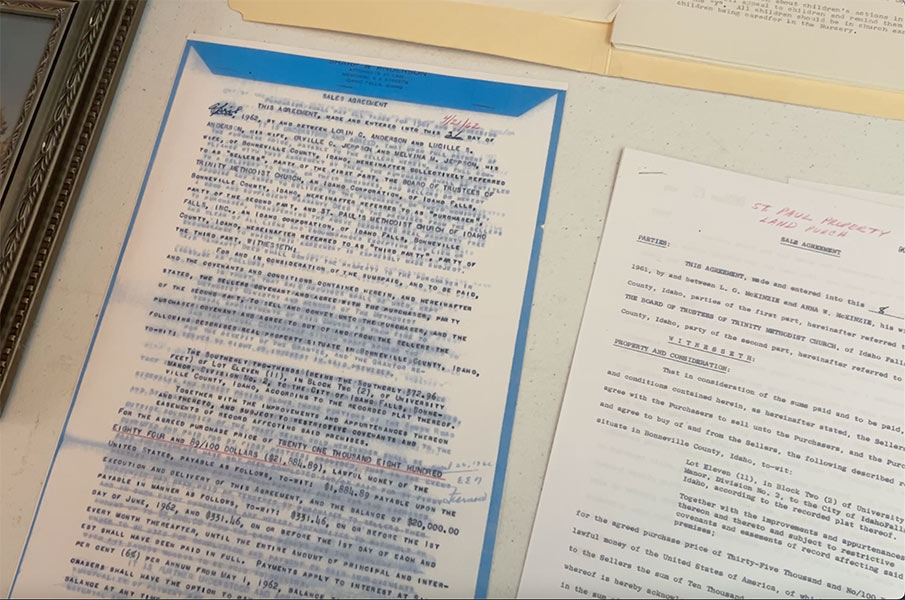 about children's actions in
appeal to children and remind them
All children should be in church
children being caredfor in the Nursery.
IDAHO FALLS, IDAHO
SALES AGREEMENT
4/21/62
THIS AGREEMENT, MADE AND ENTERED INTO THIS DAY OF
1962, BY AND BETWEEN LORIN C. ANDERSON AND LUCILLE S.
ANDERSON, HIS WIFE, ORVILLE C. JEPPSON AND MELVINA M. JEPPSON, HIS
WIFE, OF BONNEVILLE COUNTY, IDAHO, HEREINAFTER COLLECTIVELY REFERRED
TO AS "SELLERS", PARTY OF THE FIRST PART, BOARD OF TRUSTEES OF
TRINITY METHODIST CHURCH, AN IDAHO CORPORATION, OF IDAHO FALLS,
BONNEVILLE COUNTY, IDAHO, HEREINAFTER REFERRED TO AS "PURCHASER",
PARTY OF THE SECOND PART, AND ST. PAUL METHODIST CHURCH OF IDAHO
FALLS, INC., AN IDAHO CORPORATION, OF IDAHO FALLS, BONNEVILLE
COUNTY, IDAHO, HEREINAFTER REFERRED TO AS "THIRD PARTY", PARTY OF
THE THIRD PART, WITNESSETH:
FOR AND IN CONSIDERATION OF THE SUM PAID, AND TO BE PAID,
AND THE COVENANTS AND CONDITIONS CONTAINED HEREIN, AND HEREINAFTER
STATED, THE SELLERS COVENANT AND AGREE WITH THE PURCHASERS, PARTY
OF THE SECOND PART, TO SELL AND CONVEY UNTO THE PURCHASERS, AND THE
PURCHASERS COVENANT AND AGREE TO BUY OF AND FROM THE SELLERS THE
FOLLOWING DESCRIBED REAL PROPERTY SITUATE IN BONNEVILLE COUNTY, IDAHO,
TO-WIT:
THE SOUTHERLY ONE-HALF THE SOUTHERLY 372.96
FEET) OF LOT ELEVEN (11), IN BLOCK TWO (2), OF UNIVERSITY
MANOR, DIVISION NO. 2, TO THE CITY OF IDAHO FALLS, BONNE-
VILLE COUNTY, IDAHO, ACCORDING TO THE RECORDED PLAT THEREOF,
TOGETHER WITH THE IMPROVEMENTS AND APPURTENANCES THEREON
AND THERETO AND SUBJECT TO RESTRICTIVE COVENANTS AND
EASEMENTS OF RECORD AFFECTING SAID PREMISES,
FOR THE AGREED PURCHASE PRICE OF TWENTY ONE THOUSAND EIGHT HUNDRED
EIGHTY FOUR AND 89/100 DOLLARS ($21,884.89), LAWFUL MONEY OF THE
UNITED STATES, PAYABLE AS FOLLOWS, TO-WIT: $1,884.89 PAID UPON THE
EXECUTION AND DELIVERY OF THIS AGREEMENT, AND THE BALANCE OF $20,000.00
PAYABLE IN MANNER AS FOLLOWS, TO-WIT: $331.46, ON OR BEFORE THE 1ST
DAY OF JUNE, 1962, AND $331.46, ON OR BEFORE THE 1ST DAY OF EACH AND
EVERY MONTH THEREAFTER, UNTIL THE ENTIRE AMOUNT OF PRINCIPAL AND INTER-
EST SHALL HAVE BEEN PAID IN FULL. PAYMENTS APPLY TO INTEREST AT SIX
PER CENT (6%) PER ANNUM FROM MAY 1, 1962, BALANCE
CHASERS SHALL HAVE THE OPTION TO
BALANCE AT ANY TIME
ST PAUL PROPERTY
LAND PURCH
SALE AGREEMENT
PARTIES:
THIS AGREEMENT, made and entered into this 8
1961, by and between L. G. McKINZIE and ANNA W. McKINZIE, his wi
County, Idaho, parties of the first part, hereinafter referred t
THE BOARD OF TRUSTEES OF TRINITY METHODIST CHURCH, of Idaho Fal
County, Idaho, party of the second part, hereinafter referred to
W I T N E S S E T H:
PROPERTY AND CONSIDERATION:
That in consideration of the sums paid and to be paid,
and conditions contained herein, as hereinafter stated, the Sellers
agree with the Purchasers to sell unto the Purchasers, and the Purch
and agree to buy of and from the Sellers, the following described re
situate in Bonneville County, Idaho, to-wit:
Lot Eleven (11), in Block Two (2) of University
Manor, Division No. 2, to the City of IdahoFalls
Idaho, according to the recorded plat thereof.
Together with the improvements and appurtenances
thereon and thereto and subject to restrictive
covenants and easements of record affecting said
premises;
for the agreed purchase price of Thirty-Five Thousand and No/100
lawful money of the United States of America, of whic
to the Sellers the sum of Ten Thousand
whereof is hereby acknow
in the sum